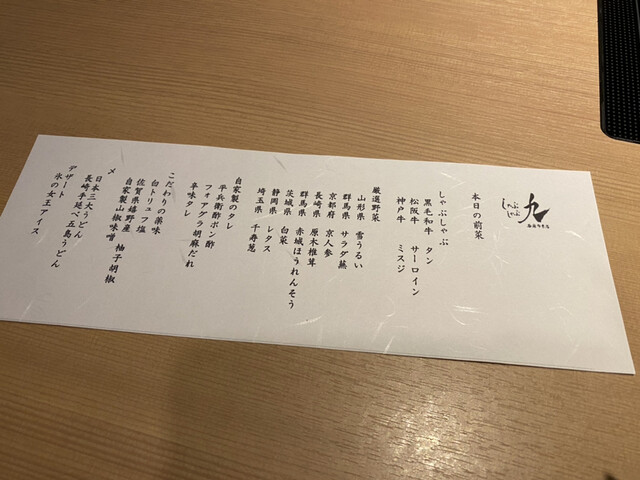 しゃぶしゃぶ
九
本日の前菜
しゃぶしゃぶ
黒毛和牛 タン
松阪牛 サーロイン
神戸牛 ミスジ
厳選野菜
山形県 雪うるい
群馬県 サラダ蕪
京都府 京人参
長崎県 原木椎茸
群馬県 赤城ほうれんそう
茨城県 白菜
静岡県 レタス
埼玉県 千寿葱
自家製のタレ
平兵衛酢ポン酢
フォアグラ胡麻だれ
辛味タレ
こだわりの薬味
白トリュフ塩
佐賀県嬉野産 柚子胡椒
自家製山椒味噌
〆
日本三大うどん
長崎手延べ五島うどん
デザート
氷の女王アイス